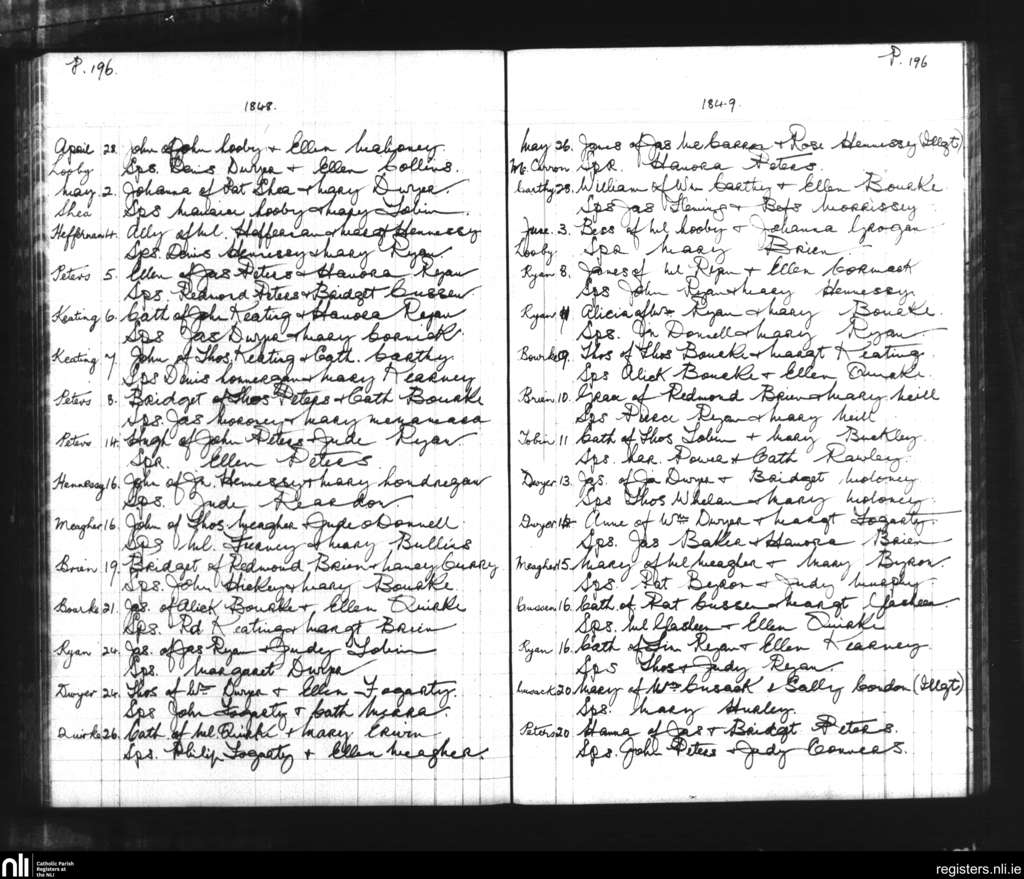 P. 196.
1848.
April 28. John of John Looby + Ellen Mahoney.
Looby Sps. Denis Dwyer + Ellen Collins.
May 2. Johanna of Pat Shea + Mary Dwyer.
Shea Sps Looby + Mary Tobin.
Heffernan 4. Ally of Ml. Heffernan + Margt Hennessy
Sps. Denis Hennessy + Mary Ryan.
Peters 5. Ellen of Jas Peters + Hanora Ryan
Sps. Redmond Peters + Bridget Cussen
Keating 6. Cath of John Keating + Hanora Ryan
Sps Jas Dwyer + Mary Cormick.
Keating 7 John of Thos. Keating + Cath. Carthy.
Sps Denis Lonnergan + Mary Kearney
Peters 8. Bridget of Thos Peters + Cath Bourke
Sps. Jas Moroney + Mary
Peters 14. Hugh of John Peters + Jude Ryan
Spr. Ellen Peters
Hennessy 16. John of Jn Hennessy + Mary Londregan
Sps. Jude Reardon
Meagher 16. John of Thos. Meagher + Jude O Donnell.
Sps Ml. + Mary Bullins
Brien 19. Bridget of Redmond Brien + Nancy Curry
Sps. John Hickey + Mary Bourke
Bourke 21. Jas. of Alick Bourke + Ellen Quirke
Sps. Rd Keating + Margt Brien
Ryan 24. Jas. of Jas Ryan + Judy Tobin
Sps. Margaret Dwyer
Dwyer 24. Thos of Wm Dwyer + Ellen Fogarty.
Sps John Fogarty + Cath Meara.
Quirke 26. Cath. of Ml Quirke + Mary Erwin
Sps. Philip Fogarty + Ellen Meagher.
P. 196
1849.
May 26. James of Jas McCarron + Rose Hennessy (Illgt).
Mc. Carron Spr. Hanora Peters.
Carthy 28. William of Wm Carthy + Ellen Bourke
Sps Jas Fleming + Bess Morrissey
June 3. Bess of Ml Looby + Johanna Grogan
Looby. Spr Mary Brien
Ryan 8. James of Ml Ryan + Ellen Cormack
Sps John Ryan + Mary Hennessy.
Ryan 9 Alicia of Wm Ryan + Mary Bourke.
Sps. Jn Donnell + Mary Ryan
Bourke 9. Thos of Thos Bourke + Margt Keating.
Sps Alick Bourke + Ellen Quirke.
Brien 10. of Redmond Brien + Mary Neill
Sps Pierce Ryan + Mary Neill
Tobin 11 Cath of Thos Tobin + Mary Buckley.
Sps. Power + Cath Rawley.
Dwyer 13. Jas. of Jn Dwyer + Bridget Moloney
Sps Thos Whelan + Mary Moloney.
Dwyer 14 Anne of Wm Dwyer + Margt Fogarty.
Sps. Jas Baker + Hanora Brien
Meagher 15 Mary of Ml Meagher + Mary Byron.
Sps. Pat Byron + Judy Murphy
Cussen 16. Cath. of Pat Cussen + Margt
Sps. Ml + Ellen Quirke
Ryan 16. Cath of Tim Ryan + Ellen Kearney
Sps Thos + Judy Ryan.
Cusack 20. Mary of Wm Cusack + Sally Condon (Illgt)
Sps. Mary Hurley.
Peters 20 Hanna of Jas + Bridgt Peters.
Sps. John Peters + Judy Conners.
nli Catholic Parish
Registers at
the NLI
registers.nli.ie